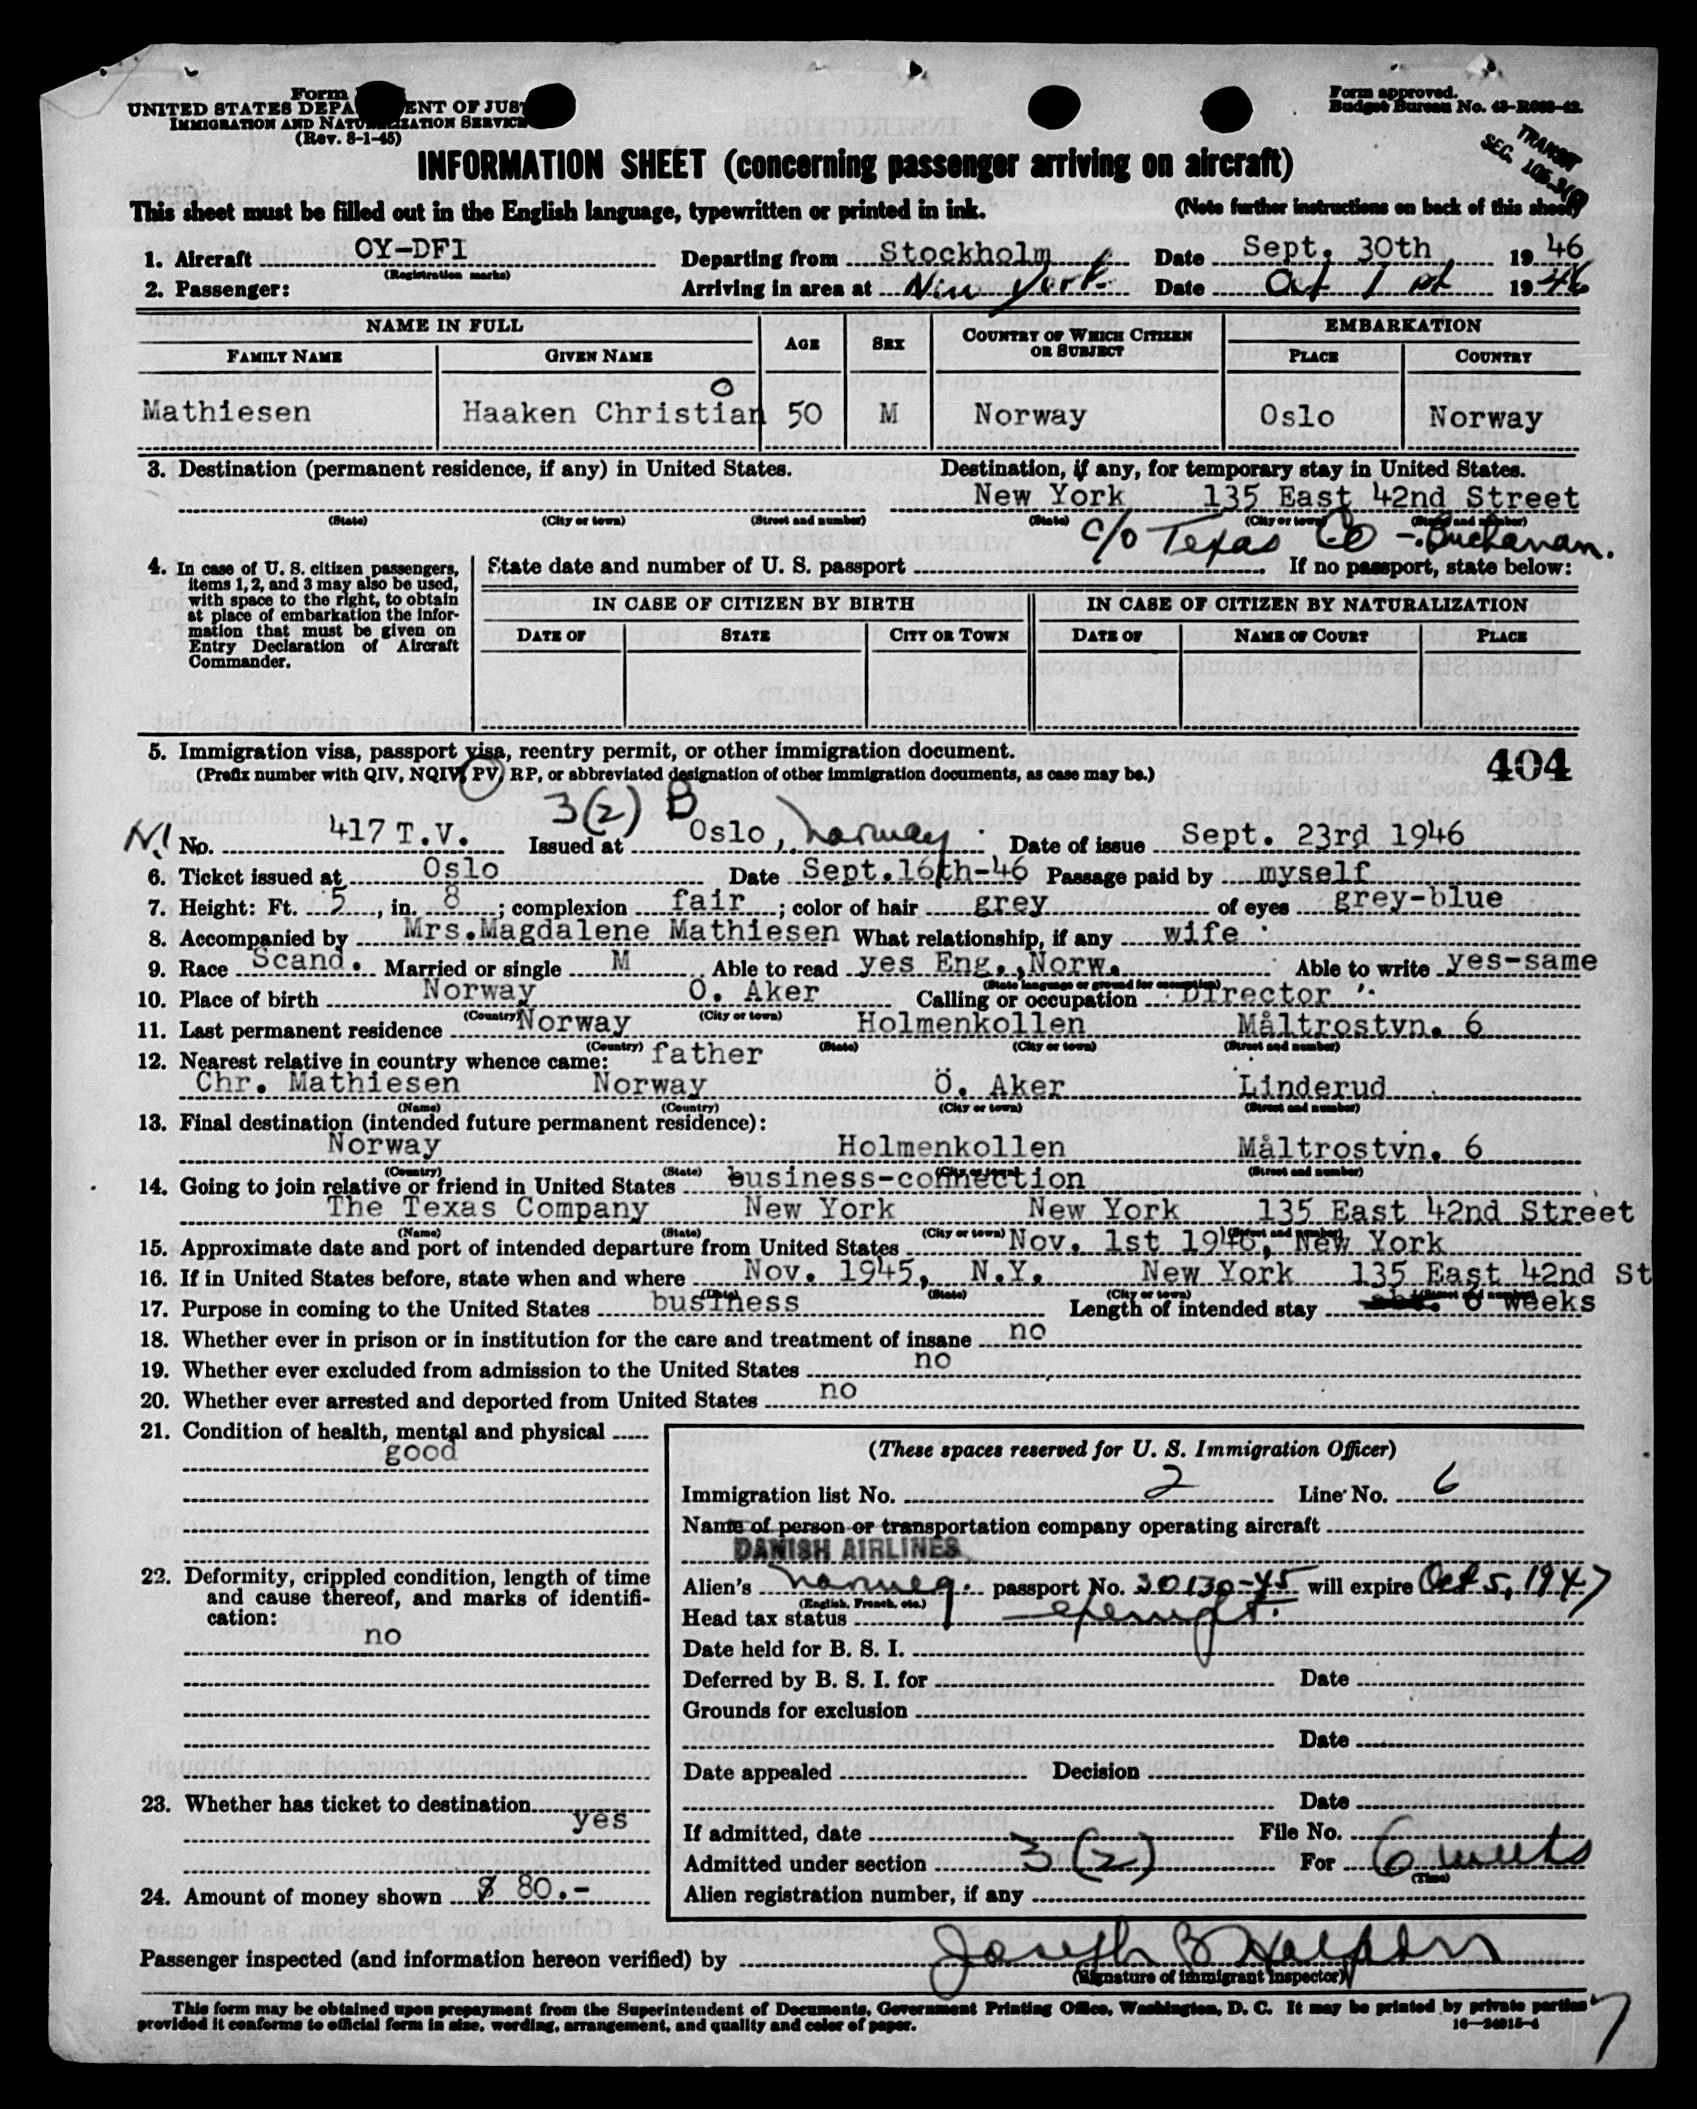 Form
UNITED STATES DEPA ENT OF JUS
IMMIGRATION AND NATU IZATION SERVICE
(Rev. 8-1-45)
Form approved.
Budget Bureau No. 43-R063-42.
TRANSIT
SEC. 105.3
INFORMATION SHEET (concerning passenger arriving on aircraft)
This sheet must be filled out in the English language, typewritten or printed in ink. (Note further instructions on back of this sheet)
1. Aircraft OY-DFI Departing from Stockholm Date Sept. 30th 1946
(Registration marks)
2. Passenger: Arriving in area at New York Date Oct 1 st 1946
NAME IN FULL AGE SEX COUNTRY OF WHICH CITIZEN OR SUBJECT EMBARKATION
FAMILY NAME GIVEN NAME PLACE COUNTRY
Mathiesen Haaken Christian 50 M Norway Oslo Norway
3. Destination (permanent residence, if any) in United States. Destination, if any, for temporary stay in United States.
New York 135 East 42nd Street
(State) (City or town) (Street and number) (State) (City or town) (Street and number)
c/o Texas Co -. Buchanan.
4. In case of U. S. citizen passengers, items 1, 2, and 3 may also be used, with space to the right, to obtain at place of embarkation the information that must be given on Entry Declaration of Aircraft Commander.
State date and number of U. S. passport If no passport, state below:
IN CASE OF CITIZEN BY BIRTH IN CASE OF CITIZEN BY NATURALIZATION
DATE OF STATE CITY OR TOWN DATE OF NAME OF COURT PLACE
5. Immigration visa, passport visa, reentry permit, or other immigration document. 404
(Prefix number with QIV, NQIV, PV, RP, or abbreviated designation of other immigration documents, as case may be.)
3(2) B
No. 417 T.V. Issued at Oslo, Norway Date of issue Sept. 23rd 1946
6. Ticket issued at Oslo Date Sept.16th-46 Passage paid by myself
7. Height: Ft. 5, in. 8; complexion fair; color of hair grey of eyes grey-blue
8. Accompanied by Mrs.Magdalene Mathiesen What relationship, if any wife
9. Race Scand. Married or single M Able to read yes Eng.,Norw. Able to write yes-same
(State language or ground for exemption)
10. Place of birth Norway Ö. Aker Calling or occupation Director
(Country) (City or town)
11. Last permanent residence Norway Holmenkollen Måltrostvn. 6
(Country) (State) (City or town) (Street and number)
12. Nearest relative in country whence came: father
Chr. Mathiesen Norway Ö. Aker Linderud
(Name) (Country) (City or town) (Street and number)
13. Final destination (intended future permanent residence):
Norway Holmenkollen Måltrostvn. 6
(Country) (State) (City or town) (Street and number)
14. Going to join relative or friend in United States business-connection
The Texas Company New York New York 135 East 42nd Street
(Name) (State) (City or town) (Street and number)
15. Approximate date and port of intended departure from United States Nov. 1st 1946, New York
16. If in United States before, state when and where Nov. 1945, N.Y. New York 135 East 42nd St
(Date) (State) (City or town) (Street and number)
17. Purpose in coming to the United States business Length of intended stay 6 weeks
18. Whether ever in prison or in institution for the care and treatment of insane no
19. Whether ever excluded from admission to the United States no
20. Whether ever arrested and deported from United States no
21. Condition of health, mental and physical
good
22. Deformity, crippled condition, length of time and cause thereof, and marks of identification:
no
23. Whether has ticket to destination
yes
24. Amount of money shown $ 80.-
(These spaces reserved for U. S. Immigration Officer)
Immigration list No. 2 Line No. 6
Name of person or transportation company operating aircraft
DANISH AIRLINES
Alien's Norweg. passport No. 30130-45 will expire Oct 5, 1947
(English, French, etc.)
Head tax status exempt.
Date held for B. S. I.
Deferred by B. S. I. for Date
Grounds for exclusion
Date
Date appealed Decision
Date
If admitted, date File No.
Admitted under section 3(2) For 6 weeks
(Time)
Alien registration number, if any
Passenger inspected (and information hereon verified) by Joseph B Halpern
(Signature of immigrant inspector)
This form may be obtained upon prepayment from the Superintendent of Documents, Government Printing Office, Washington, D. C. It may be printed by private parties
provided it conforms to official form in size, wording, arrangement, and quality and color of paper. 16—24915-4